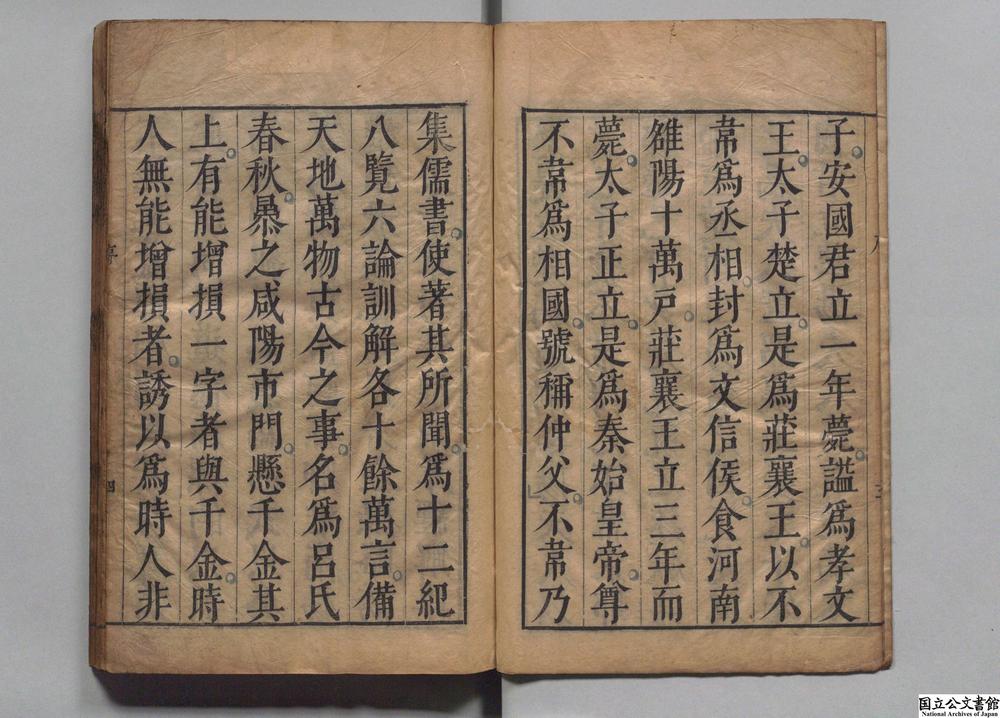 子安國君立一年薨謚爲孝文
王太子楚立是爲莊襄王以不
韋爲丞相封爲文信侯食河南
雒陽十萬戶莊襄王立三年而
薨太子正立是爲秦始皇帝尊
不韋爲相國號稱仲父不韋乃
集儒書使著其所聞爲十二紀
八覽六論訓解各十餘萬言備
天地萬物古今之事名爲呂氏
春秋暴之咸陽市門懸千金其
上有能增損一字者與千金時
人無能增損者誘以爲時人非
四
国立公文書館
National Archives of Japan